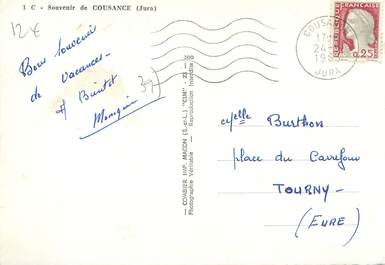 1 C - Souvenir de COUSANCE (Jura)
12 €
Bons Souvenirs
de Vacances -
A Bientôt
COMBIER IMP. MACON (S.-&-L.) "CIM"
Photographie Véritable - Reproduction Interdite
COUSANCE
17
24-
19
JURA
REPUBLIQUE FRANÇAISE
0,25
POSTES
elle Burthon
place du Carrefour
TOURNY -
(EURE)